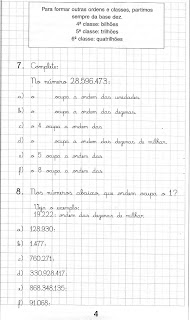 Para formar outras ordens e classes, partimos
sempre da base dez.
4ª classe: bilhões
5ª classe: trilhões
6ª classe: quatrilhões
7. Complete:
No número 28.596.473:
a) o ocupa a ordem das unidades.
b) o ocupa a ordem das dezenas.
c) o 4 ocupa a ordem das
d) o ocupa a ordem das dezenas de milhar.
e) o 5 ocupa a ordem das
f) o 8 ocupa a ordem das
8. Nos números abaixo, que ordem ocupa o 1?
Veja o exemplo:
19.222: ordem das dezenas de milhar.
a) 128.930:
b) 1.477:
c) 760.271:
d) 330.928.417:
e) 868.348.135:
f) 91.068:
4